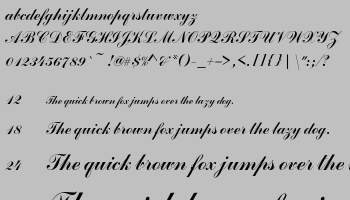 abcdefghijklmnopqrstuvwxyz
ABCDEFGHIJKLMNOPQRSTUVWXYZ
0123456789`~ !@#$%^&*()-_+=>,<.[]{}|\":;/?
12 The quick brown fox jumps over the lazy dog.
18 The quick brown fox jumps over the lazy dog.
24 The quick brown fox jumps over the